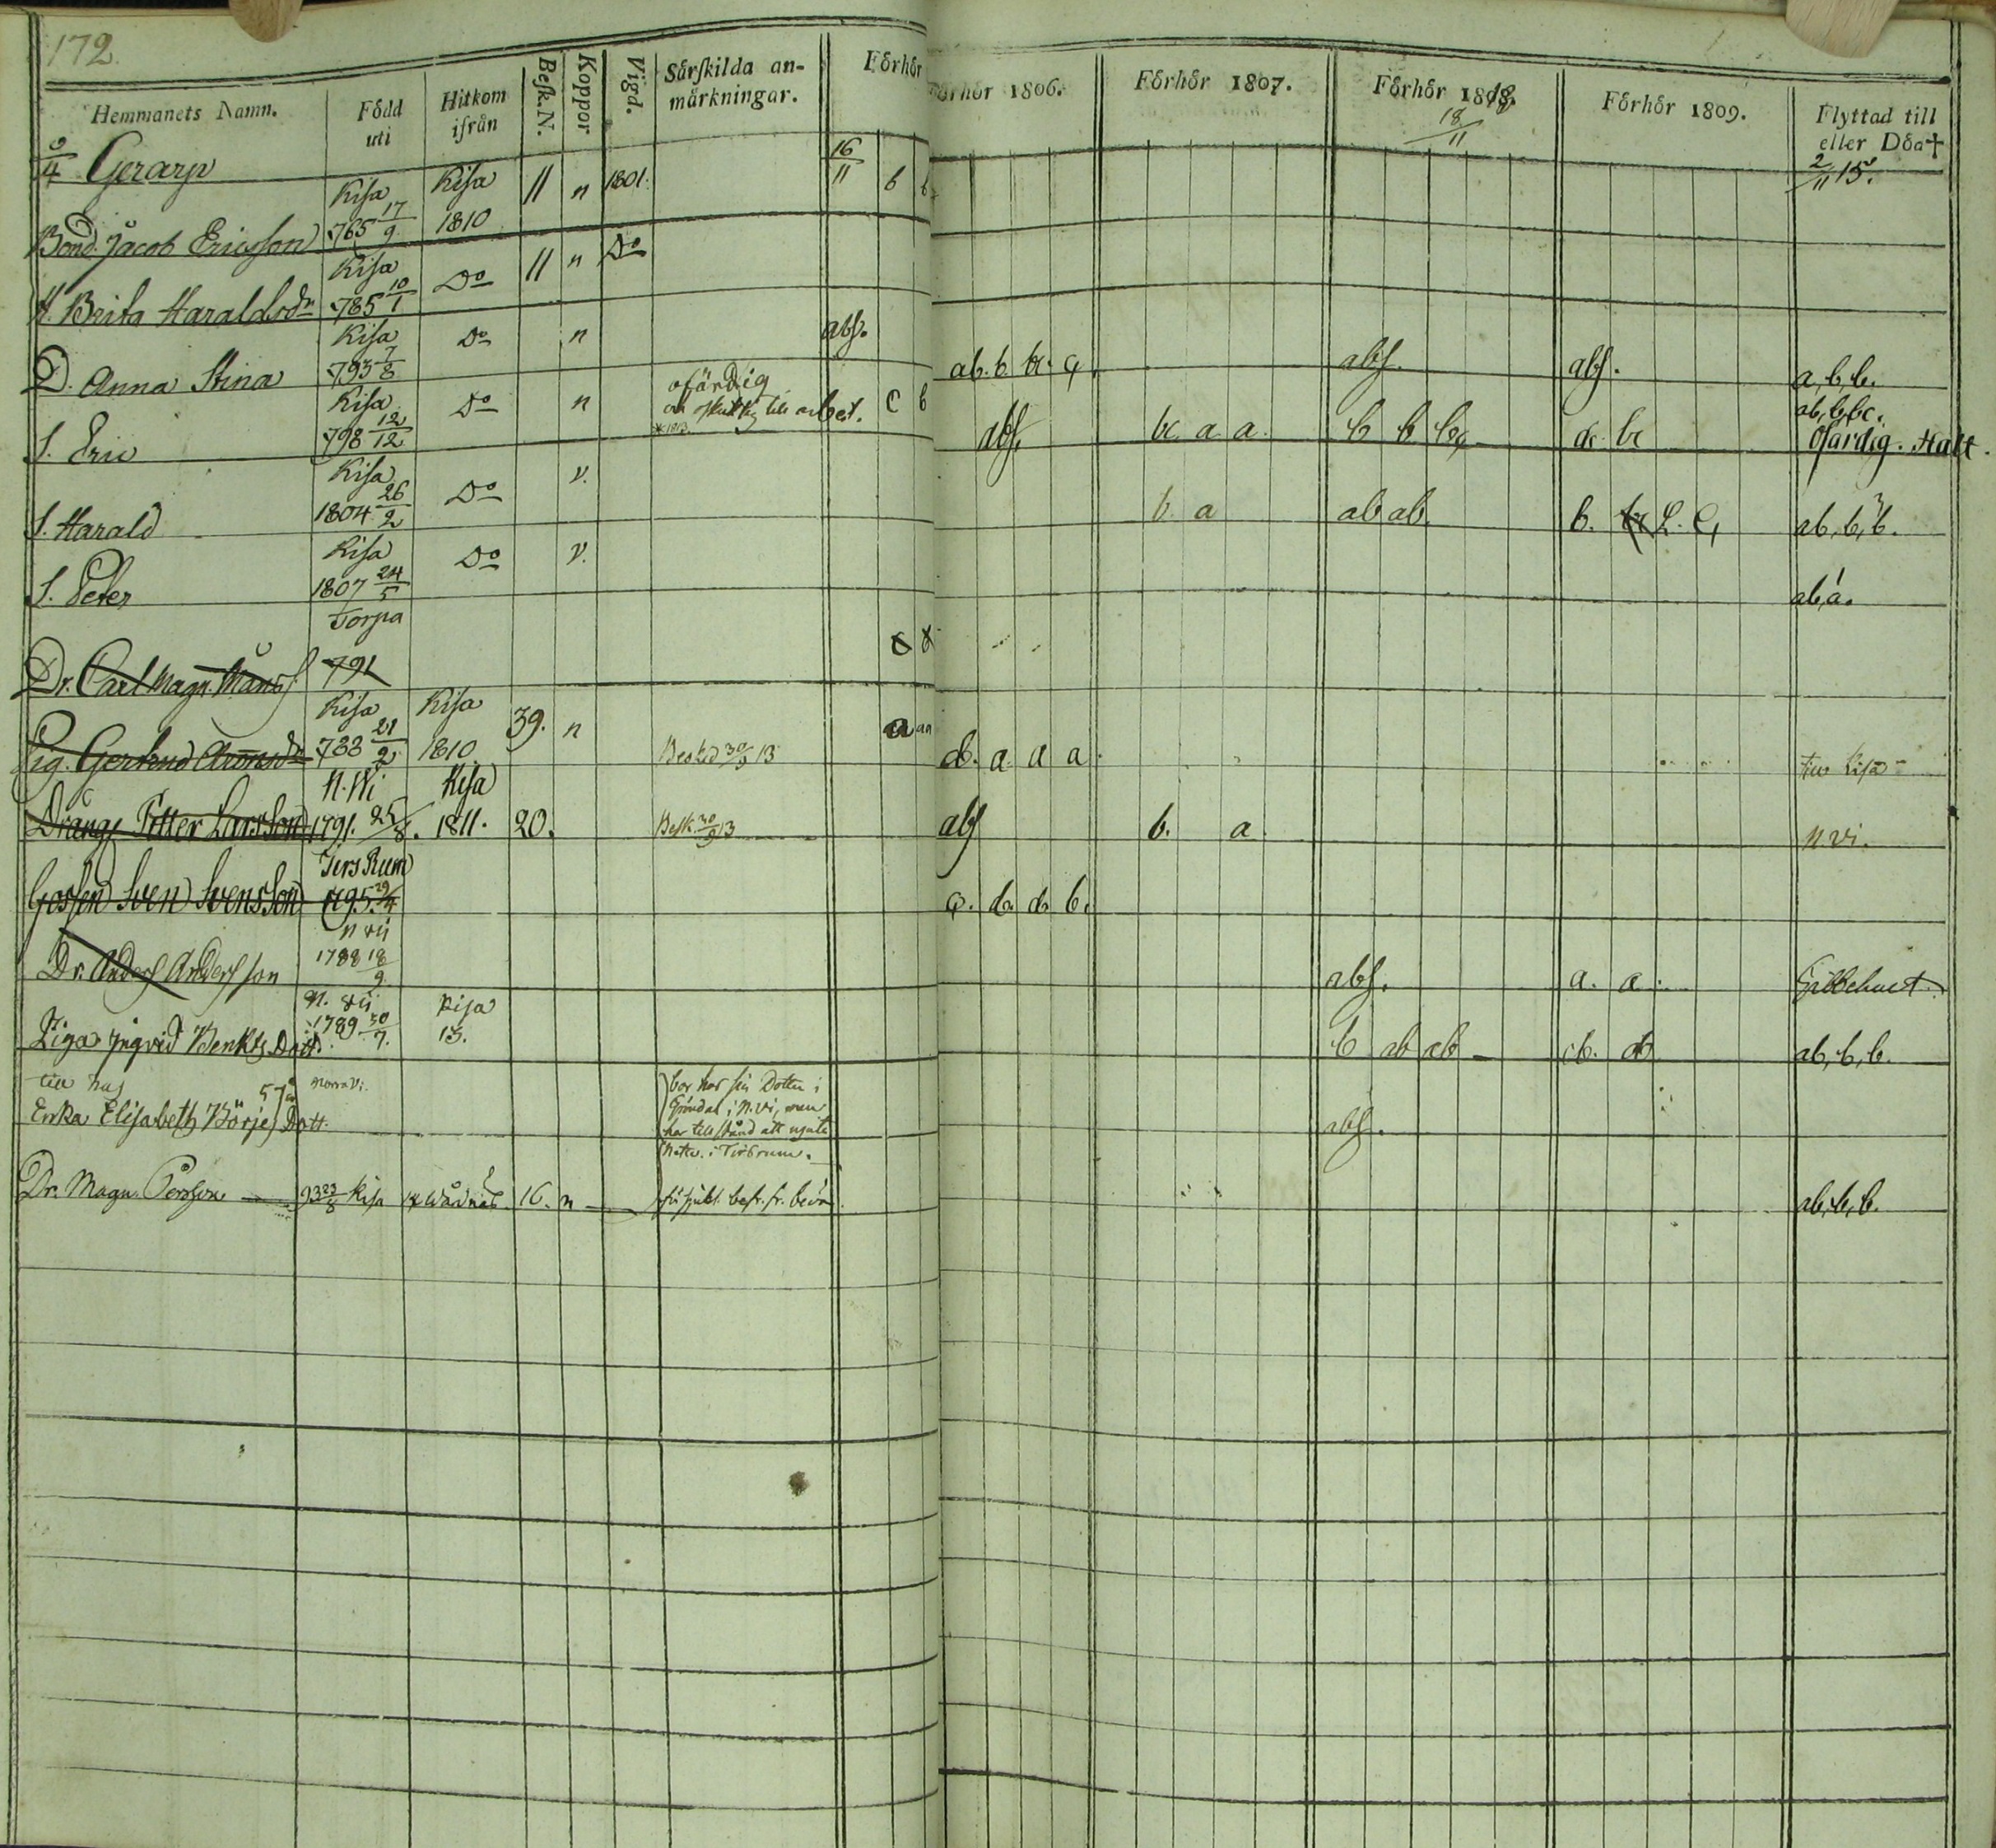 172
Hemmanets Namn.
Född uti
Hitkom ifrån
Besk. N.
Koppor
Vigd.
Särskilda anmärkningar.
Förhör
Förhör 1806.
Förhör 1807.
Förhör 1818.
18/11
Förhör 1809.
Flyttad till eller Död †
2/11 15.
Gerarp
16/11 b b
Bond. Jacob Ericsson Kisa 765 17/9 Kisa 1810 11 n 1801.
H. Brita Haraldsdr. Kisa 785 10/1 Do 11 n Do
D. Anna Stina Kisa 793 7/8 Do n abs. ab. b bc. c, abs. abs. a, b, b.
S. Eric Kisa 798 12/12 Do n ofärdig c b abs. bc. a a b b bc, bc ab, b, bc. Ofärdig. Halt.
S. Harald Kisa 1804 26/2 Do v. b. a ab ab b. L. C, ab, b, b.
S. Peter Kisa 1807 24/5 Do v. ab, a.
Dr. Carl Magn. Månss. Torpa 791
Pig. Gertrud Kisa 788 21/2 Kisa 1810 39. n 13 a d. a a a till Kisa
Dräng Petter Larsson N. Wi 1791. 25/8. Kisa 1811. 20. Besk 30/9 13 abs b. a N. vi.
Gossen Sven Svensson Ters Rum 1795 29/4 c. d. d. b.
Dr. Anders Andersson N vij 1788 18/9 abs. a. a.
Piga Ingrid Benkts Dott. N. vij 1789 30/7. Kisa 13. b ab ab ab, b, b.
till hus
Enka Elisabeth Börjes Dott. 57 år Norra Vi. bor hos sin Dotter i
Gröndal i N. Vi, men
har tillstånd att njuta
Nattv. i Tirsrum.
abs.
Dr. Magn. Persson 93 23/8 Kisa 16. n ab, b, b.